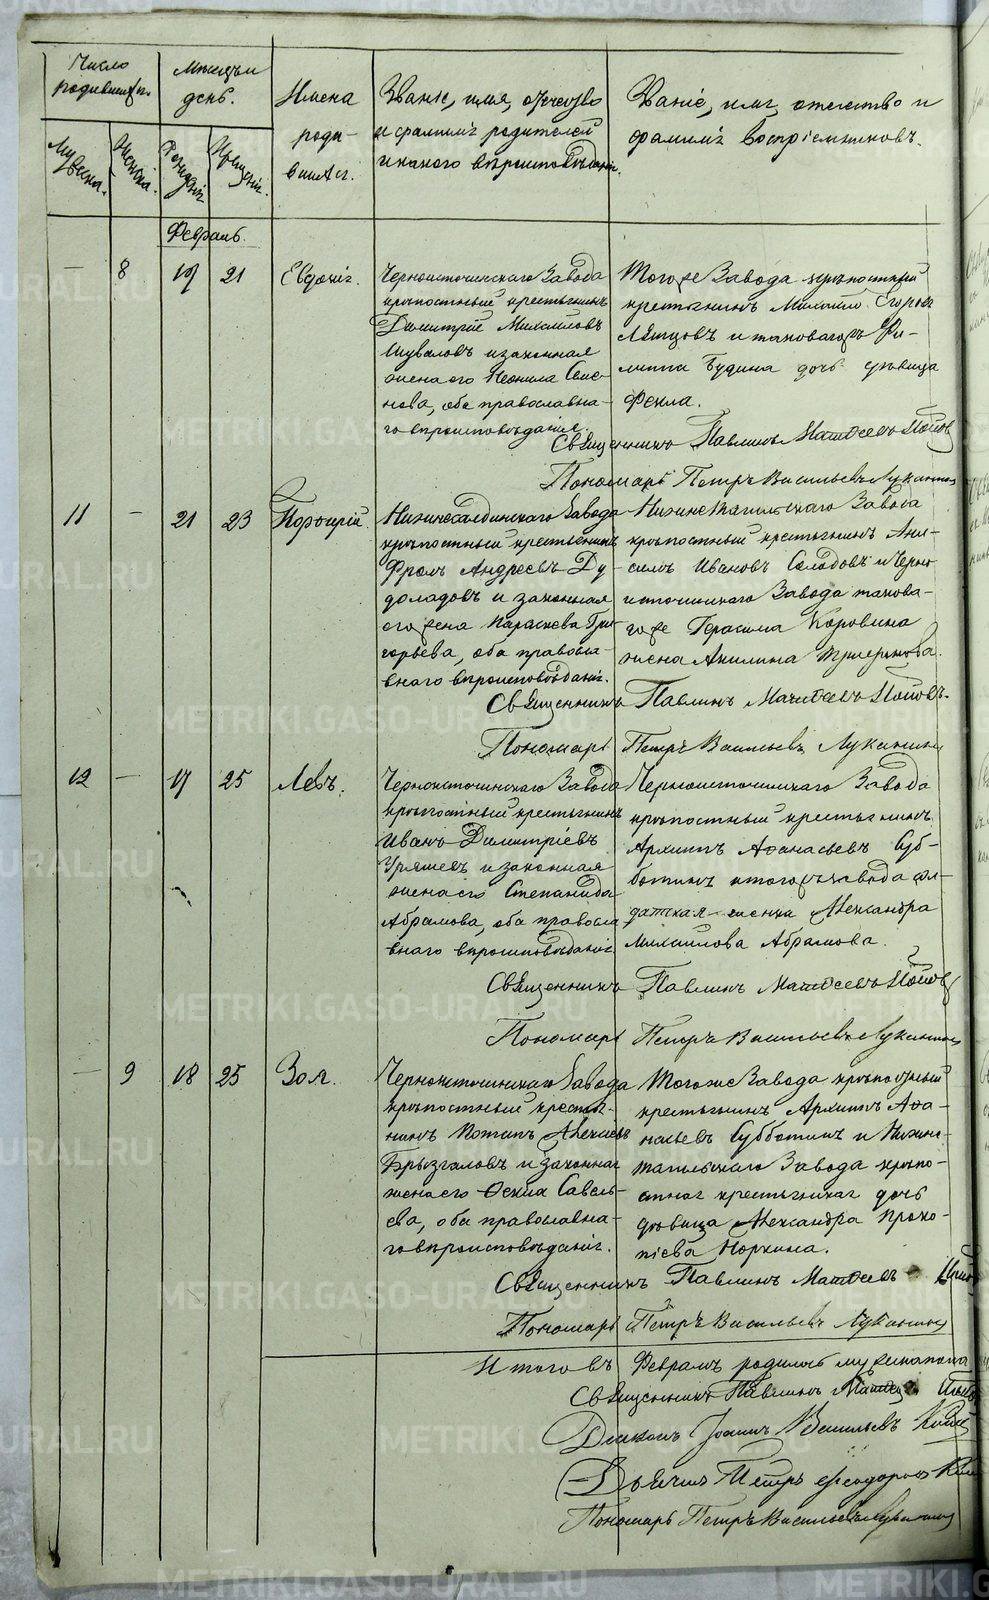 Число родившихся.
Мужеска.
Женска.
Мѣсяцъ и день.
Рожденія
Крещенія.
Имена родившихся.
Званіе, имя, отчество
и фамилія родителей
и какого вѣроисповѣданія.
Званіе, имя, отчество и
фамилія воспріемниковъ.
Февраль.
— 8 19 21 Евдокія.
Черноисточинскаго Завода
крѣпостный крестьянинъ
Димитрій Михаиловъ
Шуваловъ и законная
жена его Неонила Семе-
нова, оба православна-
го вѣроисповѣданія.
Того же Завода крѣпостный
крестьянинъ Михаило Егоровъ
и таковагожъ Фи-
липпа Будина дочь дѣвица
Фекла.
Священникъ Павлинъ Матѳеевъ Поповъ
Пономарь Петръ Васильевъ Луканинъ
11 — 21 23 Порфирій.
Нижнесалдинскаго Завода
крѣпостный крестьянинъ
Фролъ Андреевъ Ду-
доладовъ и законная
его жена Параскева Гри-
горьева, оба правосла-
внаго вѣроисповѣданія.
Нижнетагильскаго Завода
крѣпостный крестьянинъ Ани-
симъ Ивановъ Солодовъ и Черно-
источинскаго Завода такова-
гоже Герасима Коровина
жена Акилина
Священникъ Павлинъ Матѳеевъ Поповъ.
Пономарь Петръ Васильевъ Луканинъ
12 — 17 25 Левъ.
Черноисточинскаго Завода
крѣпостный крестьянинъ
Иванъ Димитріевъ
Уряшевъ и законная
жена его Степанида
Абрамова, оба правосла
внаго вѣроисповѣданія.
Черноисточинскаго Завода
крѣпостный крестьянинъ
Архипъ Аѳанасьевъ Суб-
ботинъ и тогожъ завода сол-
датская женка Александра
Михаилова Абрамова.
Священникъ Павлинъ Матѳеевъ Поповъ
Пономарь Петръ Васильевъ Луканинъ
— 9 18 25 Зоя.
Черноисточинскаго Завода
крѣпостный крестья-
нинъ Потапъ Алексеевъ
Брызгаловъ и законная
жена его Ѳекла Савель-
ева, оба православна-
го вѣроисповѣданія.
Того же Завода крѣпостный
крестьянинъ Архипъ Аѳа-
насьевъ Субботинъ и Нижне-
тагильскаго Завода крѣпо-
стная крестьянская дочь
дѣвица Александра Проко-
піева Норкина.
Священникъ Павлинъ Матѳеевъ
Пономарь Петръ Васильевъ Луканинъ
Итого въ Февралѣ родилось мужеска пола
Священникъ Павлинъ
Діаконъ Іоаннъ Васильевъ
Дьячекъ Петръ Феодоровъ
Пономарь Петръ Васильевъ Луканинъ
METRIKI.GASO-URAL.RU